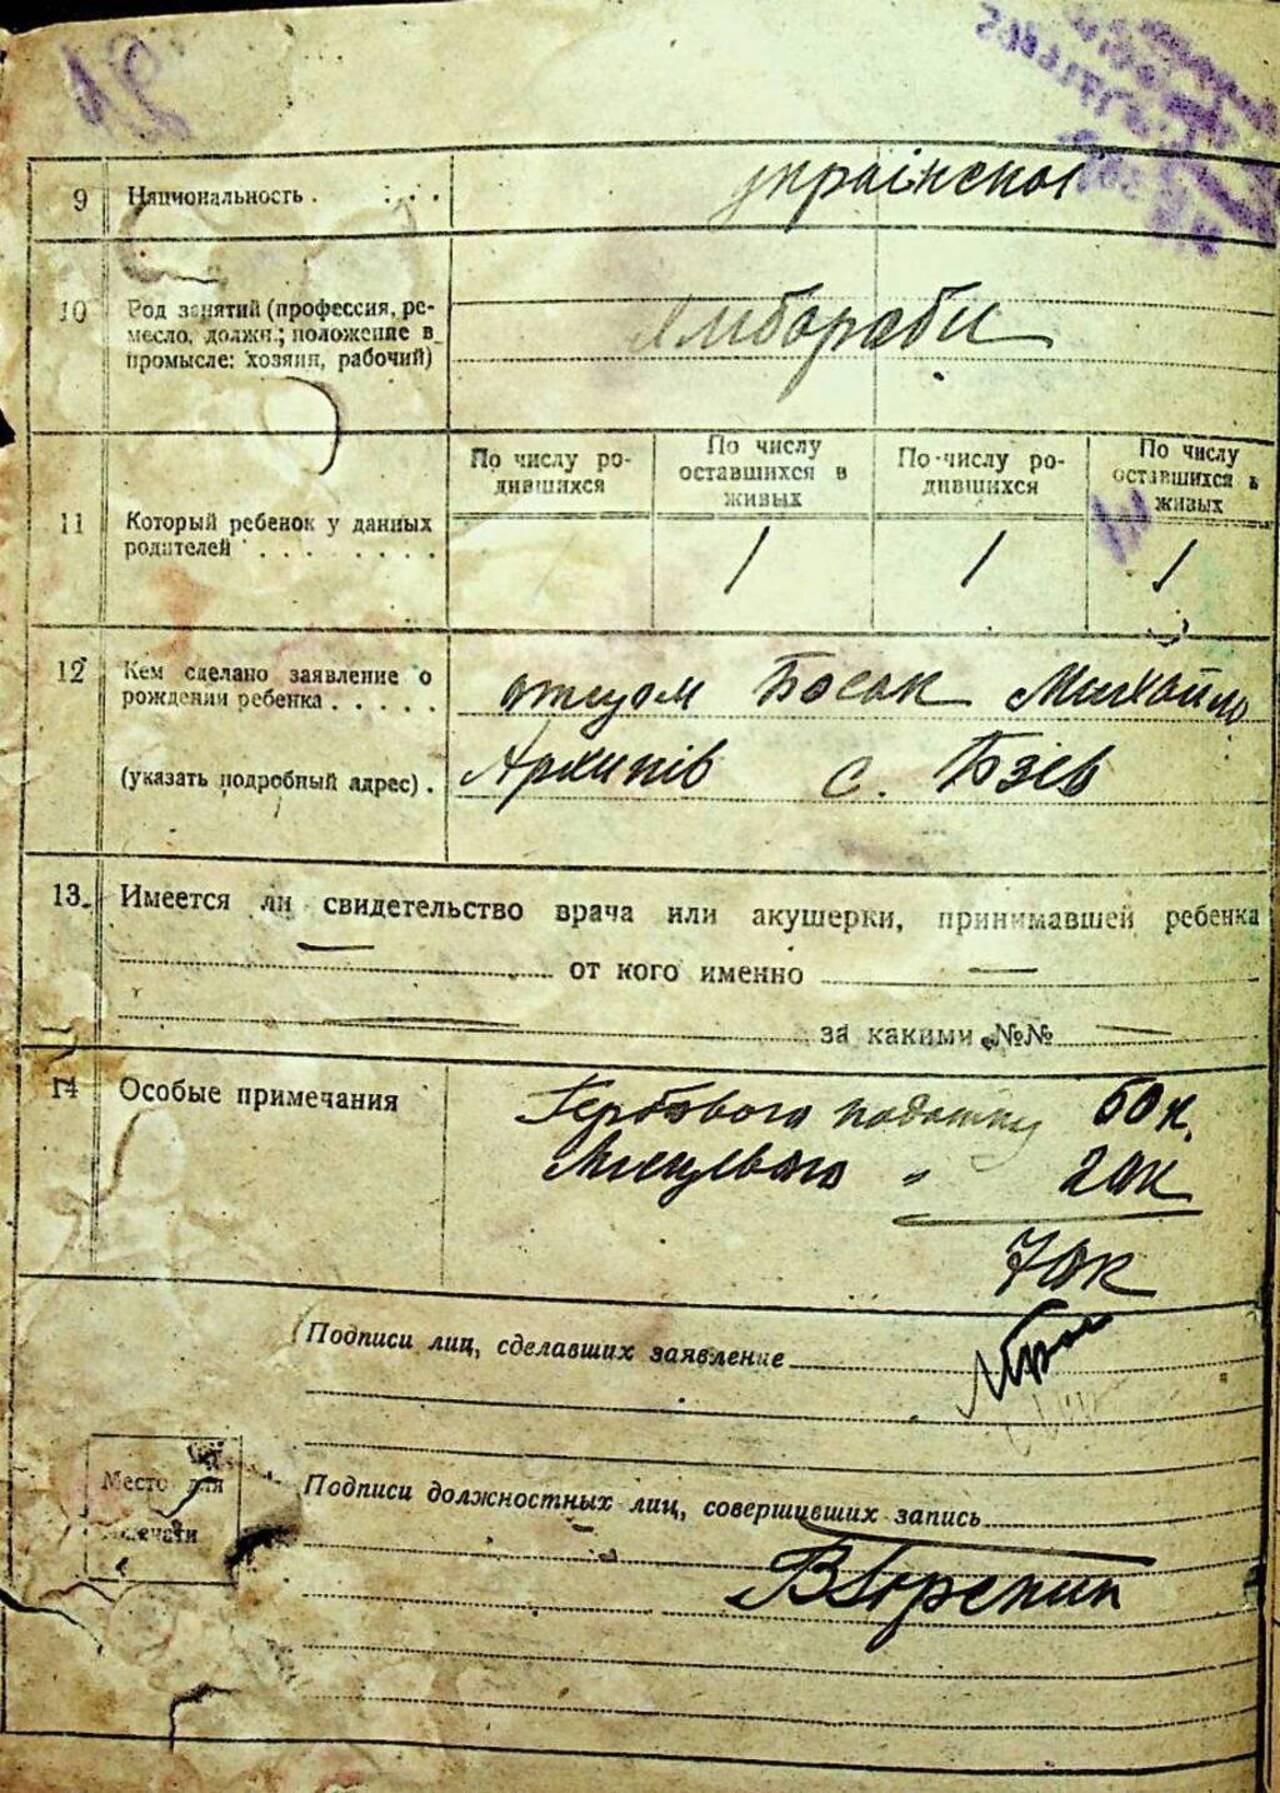 9 Национальность . . . . украінської
10 Род занятий (профессия, ре-
месло, должн.; положение в
промысле: хозяин, рабочий)
Хлібороби
По числу ро-
дившихся
По числу
оставшихся в
живых
По числу ро-
дившихся
По числу
оставшихся в
живых
11 Который ребенок у данных
родителей . . . . . . .
1 1 1
12 Кем сделано заявление о
рождении ребенка . . . . .
отцом Босак Михайло
(указать подробный адрес) .
Архипів с. Бзів
13. Имеется ли свидетельство врача или акушерки, принимавшей ребенка
— от кого именно —
— за какими №№ —
14 Особые примечания
Гербового податку 50 к.
Місцевого " 20к
70к
Подписи лиц, сделавших заявление
Место для
печати
Подписи должностных лиц, совершивших запись